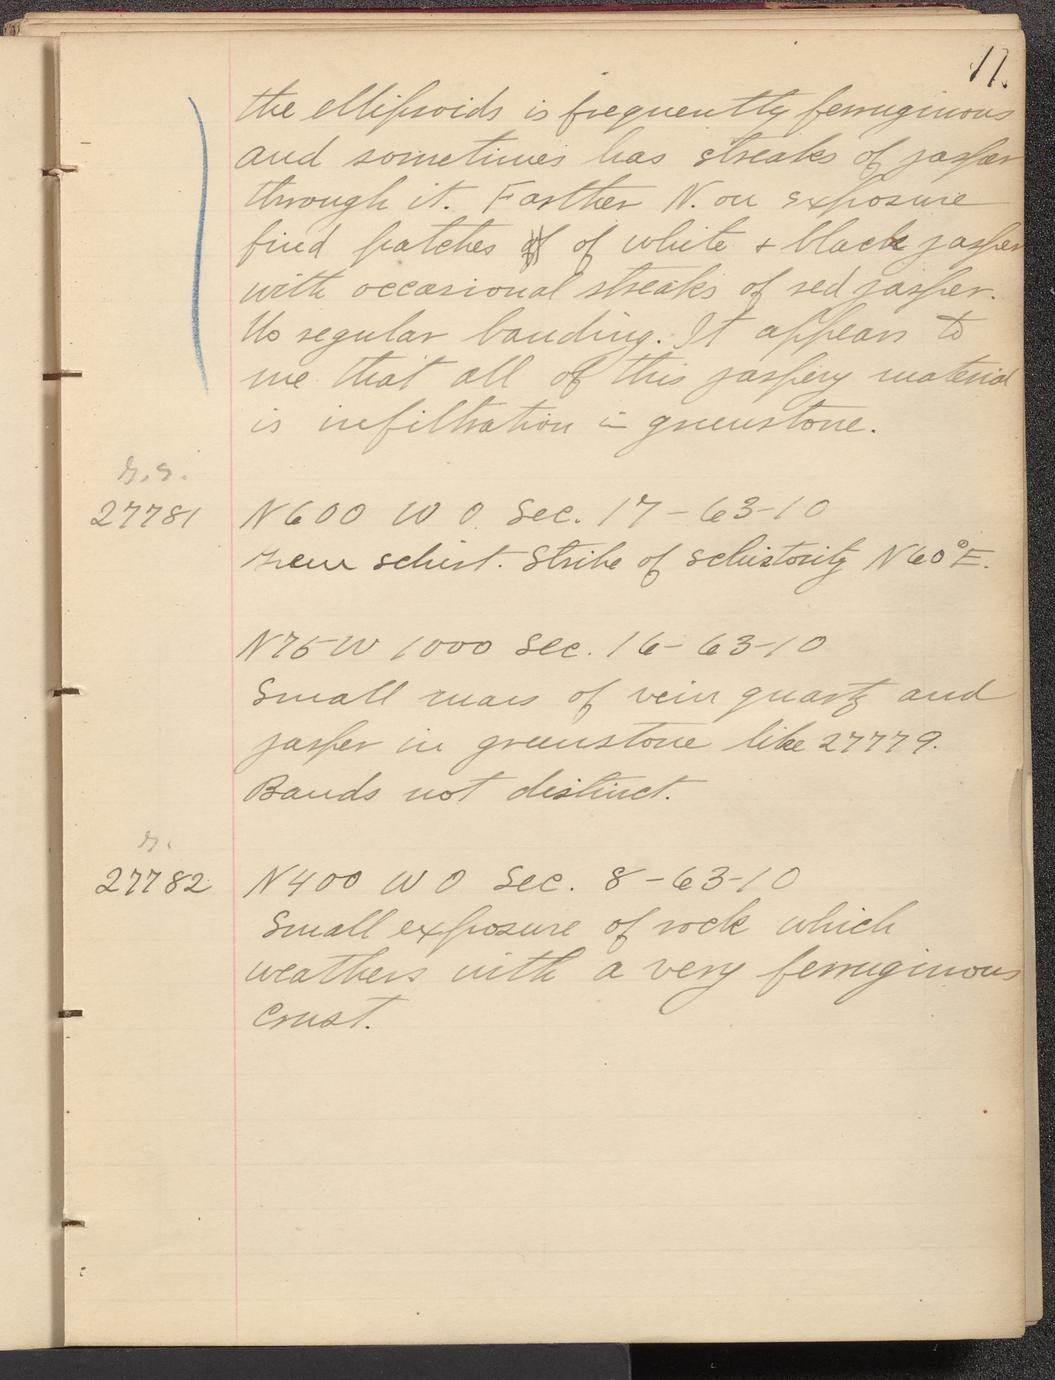 17.
the ellipsoids is frequently ferruginous
and sometimes has streaks of jasper
through it. Farther N. on exposure
find patches of white + black jasper
with occasional streaks of red jasper.
No regular banding. It appears to
me that all of this jaspery material
is infiltration in greenstone.
27781 N600 W 0 Sec. 17-63-10
Green schist. Strike of schistosity N60°E.
N75 W 1000 Sec. 16-63-10
Small mass of vein quartz and
jasper in greenstone like 27779.
Bands not distinct.
27782 N400 W 0 Sec. 8-63-10
Small exposure of rock which
weathers with a very ferruginous
crust.